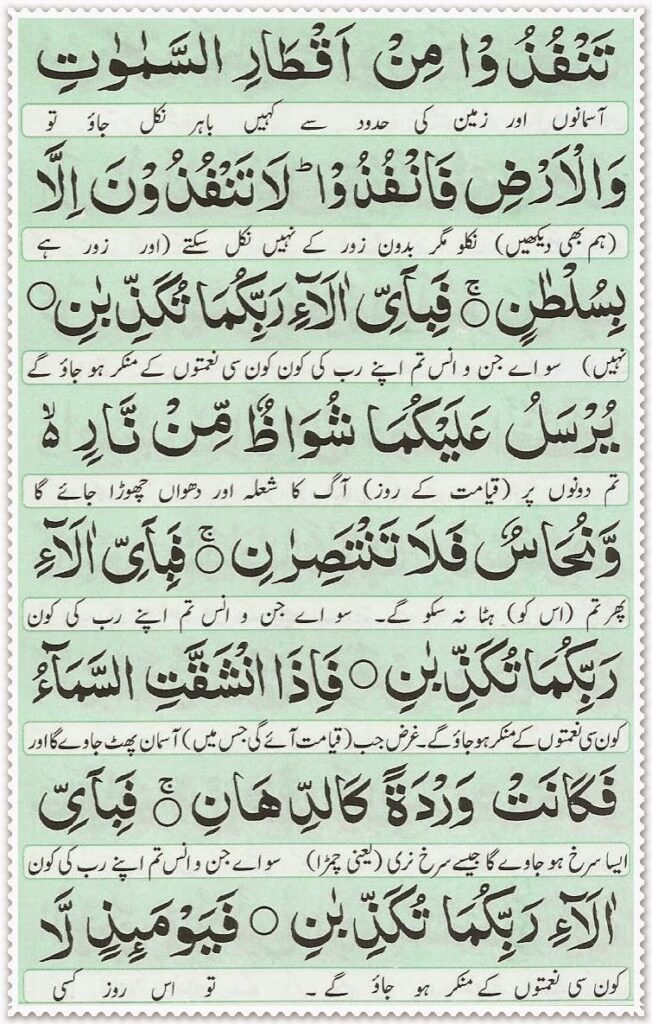 تَنْفُذُوْا مِنْ اَقْطَارِ السَّمٰوٰتِ
آسمانوں اور زمین کی حدود سے کہیں باہر نکل جاؤ تو
وَالْاَرْضِ فَانْفُذُوْا ؕ لَا تَنْفُذُوْنَ اِلَّا
(ہم بھی دیکھیں) نکلو مگر بدون زور کے نہیں نکل سکتے (اور زور ہے
بِسُلْطٰنٍ ۚ○ فَبِاَیِّ اٰلَآءِ رَبِّكُمَا تُكَذِّبٰنِ ○
نہیں) سو اے جن و انس تم اپنے رب کی کون کون سی نعمتوں کے منکر ہو جاؤ گے
یُرْسَلُ عَلَیْكُمَا شُوَاظٌ مِّنْ نَّارٍ ۙ۬
تم دونوں پر (قیامت کے روز) آگ کا شعلہ اور دھواں چھوڑا جائے گا
وَّنُحَاسٌ فَلَا تَنْتَصِرٰنِ ۚ○ فَبِاَیِّ اٰلَآءِ
پھر تم (اس کو) ہٹا نہ سکو گے۔ سو اے جن و انس تم اپنے رب کی کون
رَبِّكُمَا تُكَذِّبٰنِ ○ فَاِذَا انْشَقَّتِ السَّمَآءُ
کون سی نعمتوں کے منکر ہو جاؤ گے۔ غرض جب (قیامت آئے گی جس میں) آسمان پھٹ جاوے گا اور
فَكَانَتْ وَرْدَةً كَالدِّهَانِ ۚ○ فَبِاَیِّ
ایسا سرخ ہو جاوے گا جیسے سرخ نری (یعنی چمڑا) سو اے جن و انس تم اپنے رب کی کون
اٰلَآءِ رَبِّكُمَا تُكَذِّبٰنِ ○ فَیَوْمَىِٕذٍ لَّا
کون سی نعمتوں کے منکر ہو جاؤ گے ۔ تو اس روز کسی